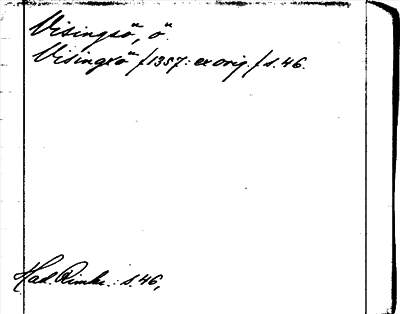 Visingsö, ö.
Visingxö /1357: ex orig./ s. 46.
Had. Rimkr.: s. 46,